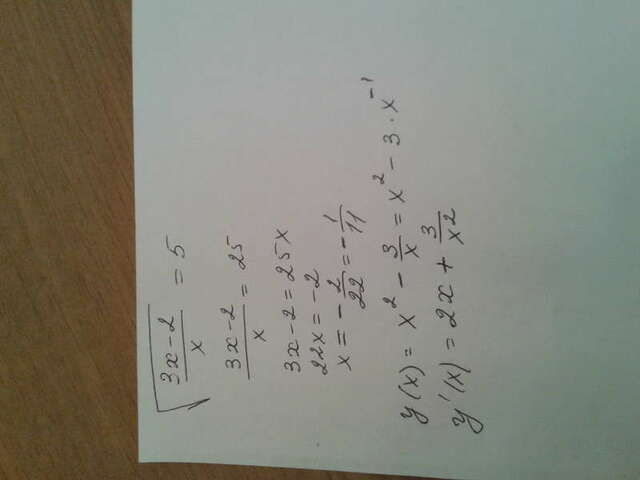 √((3x-2)/x) = 5
(3x-2)/x = 25
3x-2 = 25x
22x = -2
x = -2/22 = -1/11
y(x) = x² - 3/x = x² - 3·x⁻¹
y'(x) = 2x + 3/x²